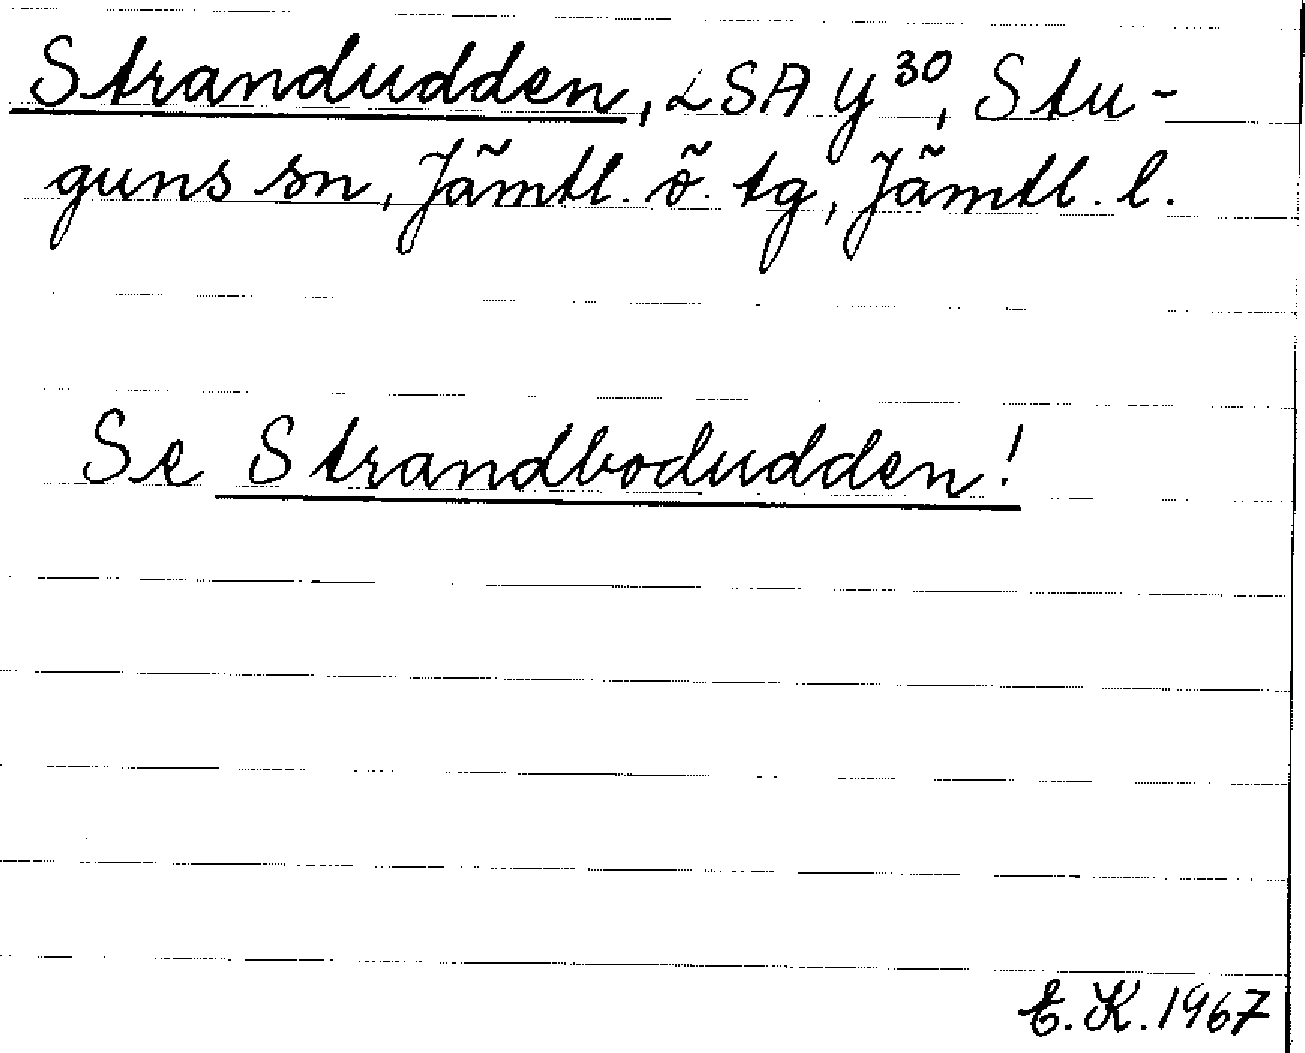 Strandudden, LSA y³⁰, Stu-
guns sn, Jämtl. ö. tg, Jämtl. l.
Se Strandbodudden!
E.K. 1967